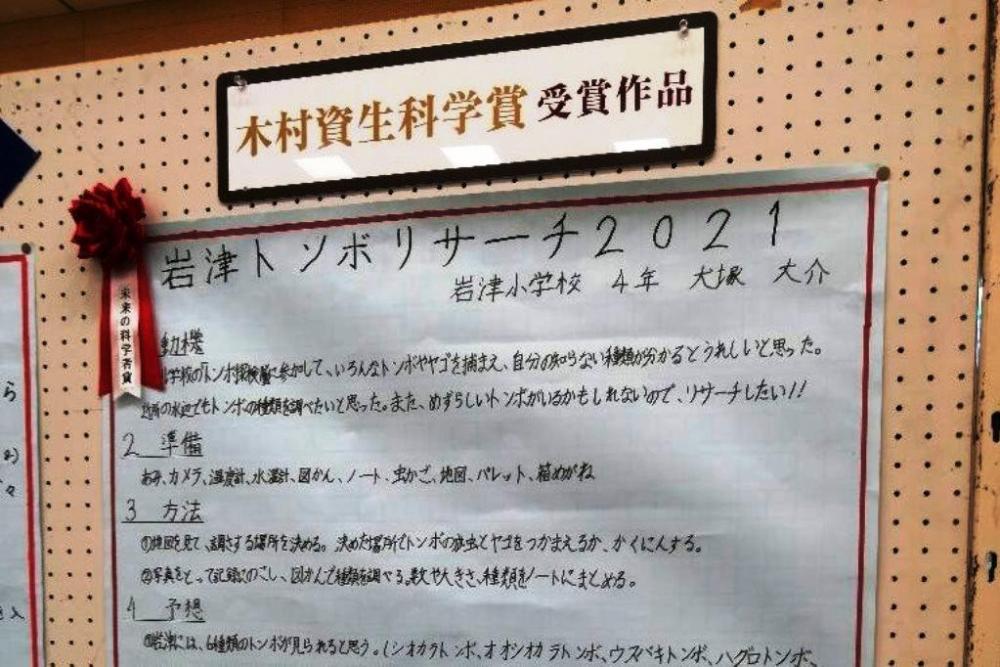 木村資生科学賞 受賞作品
岩津トンボリサーチ2021
岩津小学校 4年 大塚 大介
未来の科学者賞
動機
学校の「トンボ探検隊」に参加して、いろんなトンボやヤゴを捕まえ、自分の知らない種類が分かるとうれしいと思った。
近所の水辺でもトンボの種類を調べたいと思った。また、めずらしいトンボがいるかもしれないので、リサーチしたい!!
2 準備
あみ、カメラ、温度計、水温計、図かん、ノート、虫かご、地図、パレット、箱めがね
3 方法
①地図を見て、調さする場所を決める。決めた場所でトンボの成虫とヤゴをつかまえるか、かくにんする。
②写真をとって記録にのこし、図かんで種類を調べる。数や大きさ、種類をノートにまとめる。
4 予想
①岩津には、6種類のトンボが見られると思う。(シオカラトンボ、オオシオカラトンボ、ウスバキトンボ、ハグロトンボ、
ら